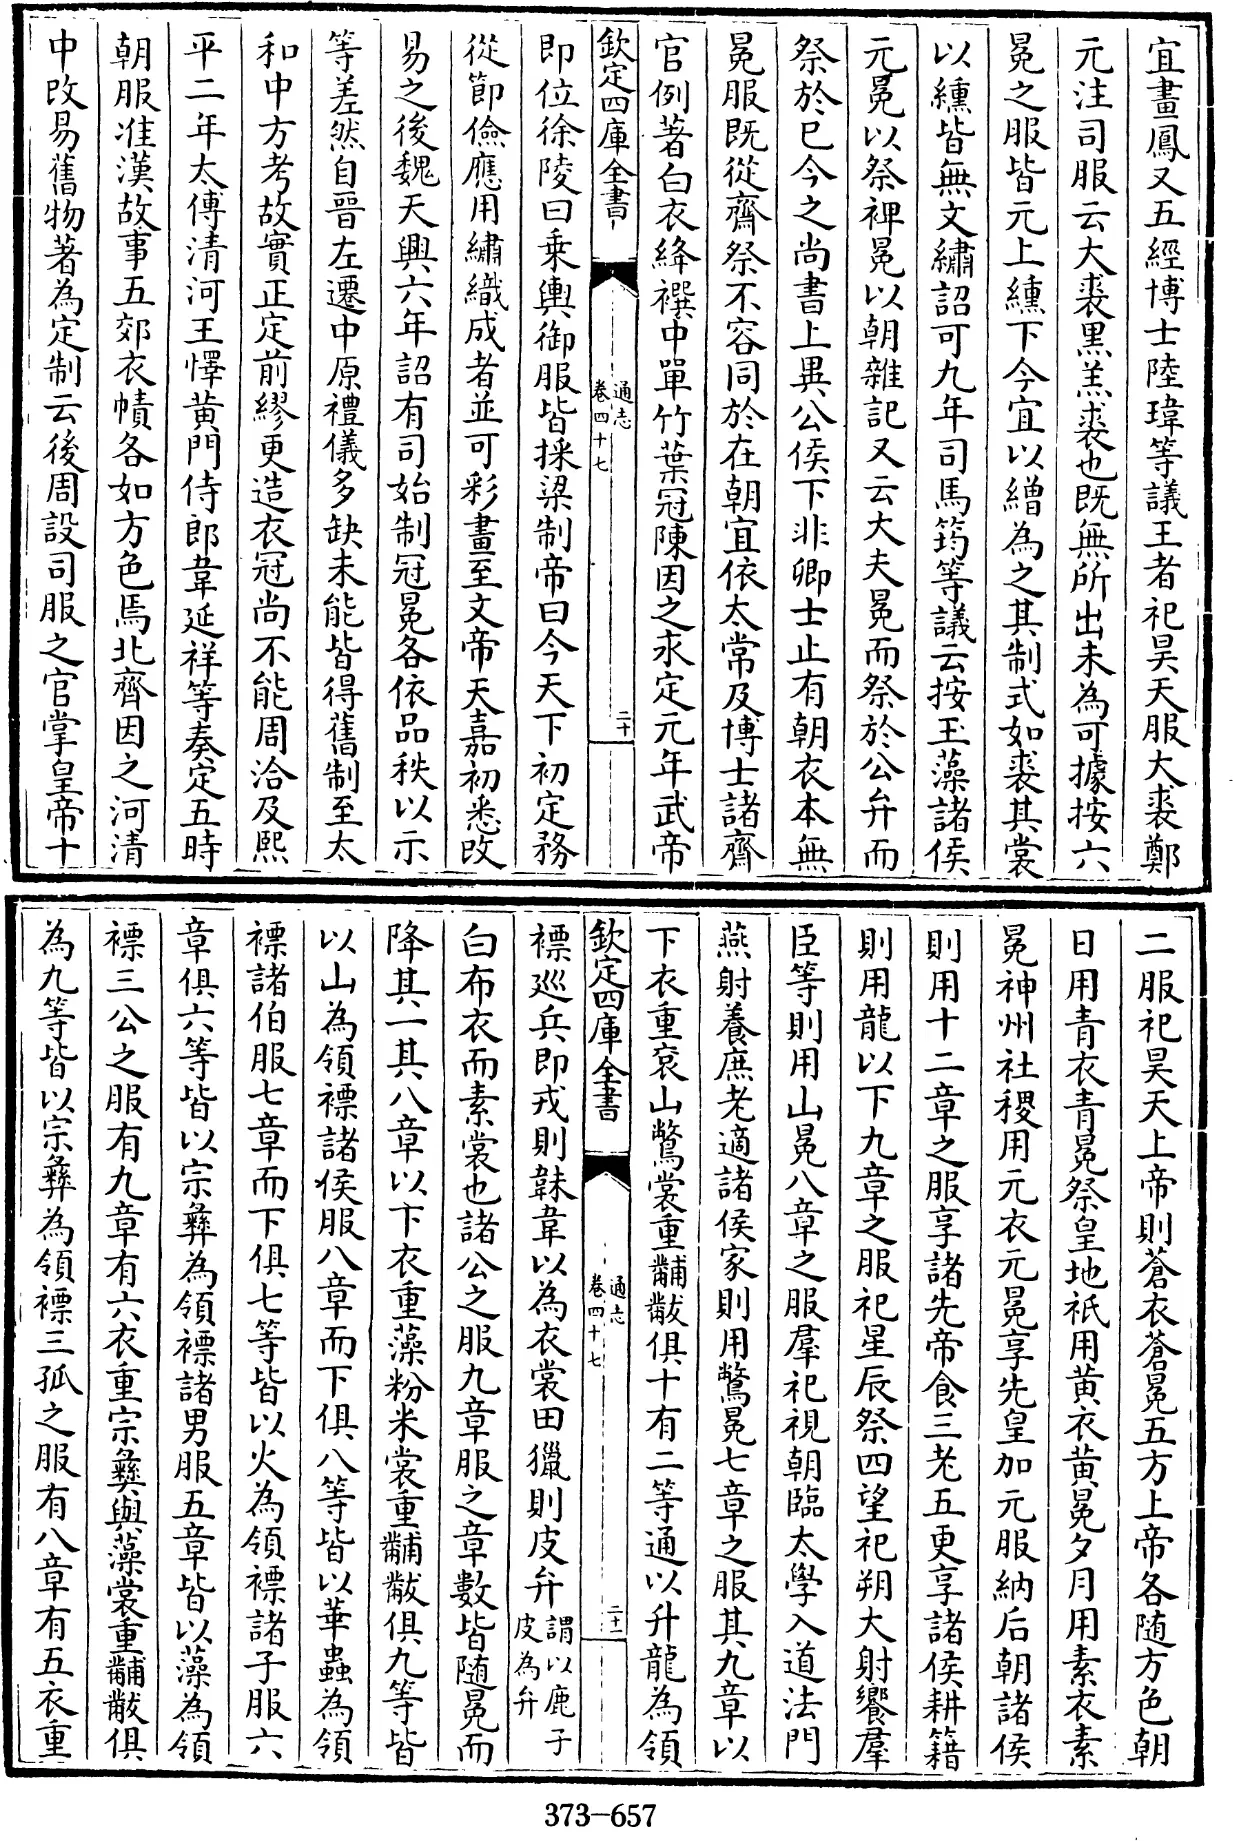 宜畫鳳又五經博士陸瑋等議王者祀昊天服大裘鄭
元注司服云大裘黒羔裘也既無所出未為可據按六
冕之服皆元上纁下今宜以繒為之其制式如裘其裳
以纁皆無文繡詔可九年司馬筠等議云按玉藻諸侯
元冕以祭裨冕以朝雜記又云大夫冕而祭於公弁而
祭於已今之尚書上異公侯下非卿士止有朝衣本無
冕服既從齋祭不容同於在朝宜依太常及博士諸齋
官例著白衣絳襈中單竹葉冠陳因之永定元年武帝
欽定四庫全書
通志
卷四十七
二十
即位徐陵曰乘輿御服皆採梁制帝曰今天下初定務
從節儉應用繡織成者並可彩畫至文帝天嘉初悉改
易之後魏天興六年詔有司始制冠冕各依品秩以示
等差然自晉左遷中原禮儀多缺未能皆得舊制至太
和中方考故實正定前繆更造衣冠尚不能周洽及熙
平二年太傅清河王懌黄門侍郎韋延祥等奏定五時
朝服准漢故事五郊衣幘各如方色焉北齊因之河清
中改易舊物著為定制云後周設司服之官掌皇帝十
二服祀昊天上帝則蒼衣蒼冕五方上帝各随方色朝
日用青衣青冕祭皇地祇用黄衣黄冕夕月用素衣素
冕神州社稷用元衣元冕享先皇加元服納后朝諸侯
則用十二章之服享諸先帝食三老五更享諸侯耕籍
則用龍以下九章之服祀星辰祭四望祀朔大射饗羣
臣等則用山冕八章之服羣祀視朝臨太學入道法門
燕射養庶老適諸侯家則用鷩冕七章之服其九章以
下衣重衮山鷩裳重黼黻俱十有二等通以升龍為領
欽定四庫全書
通志
卷四十七
二十一
褾巡兵即戎則韎韋以為衣裳田獵則皮弁謂以鹿子皮為弁
白布衣而素裳也諸公之服九章服之章數皆随冕而
降其一其八章以下衣重藻粉米裳重黼黻俱九等皆
以山為領褾諸侯服八章而下俱八等皆以華蟲為領
褾諸伯服七章而下俱七等皆以火為領褾諸子服六
章俱六等皆以宗彝為領褾諸男服五章皆以藻為領
褾三公之服有九章有六衣重宗彝與藻裳重黼黻俱
為九等皆以宗彝為領褾三孤之服有八章有五衣重
373-657